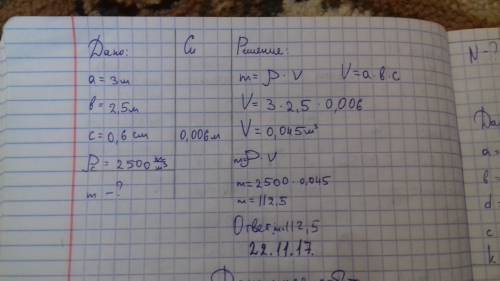 Дано:
a = 3м
в = 2,5м
c = 0,6 см
ρc = 2500 кг/м³
m - ?
Си
0,006м
Решение:
m = ρ · V V = a · в · c
V = 3 · 2,5 · 0,006
V = 0,045м³
m=ρ · V
m = 2500 · 0,045
m = 112,5
Ответ: m=112,5
22.11.17.
N-?
Да
a =
в =
d =
c
k